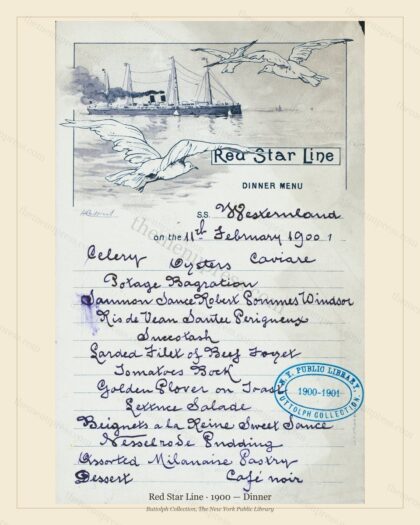 Red Star Line
DINNER MENU
S.S. Westernland
on the 11th February 1900 1
Celery Oysters Caviare
Potage Bagration
Saumon Sauce Robert Pommes Windsor
Ris de Veau Sautee Perigueux
Succotash
Larded Filet of Beef
Tomatoes
Golden Plover on Toast
Lettuce Salade
Beignets a la Reine Sweet Sauce
Nesselrode Pudding
Assorted Milanaise Pastry
Dessert Café noir
N.Y. PUBLIC LIBRARY,
1900-1901
BUTTOLPH COLLECTION.
Red Star Line · 1900 — Dinner
Buttolph Collection, The New York Public Library
themenupress.com